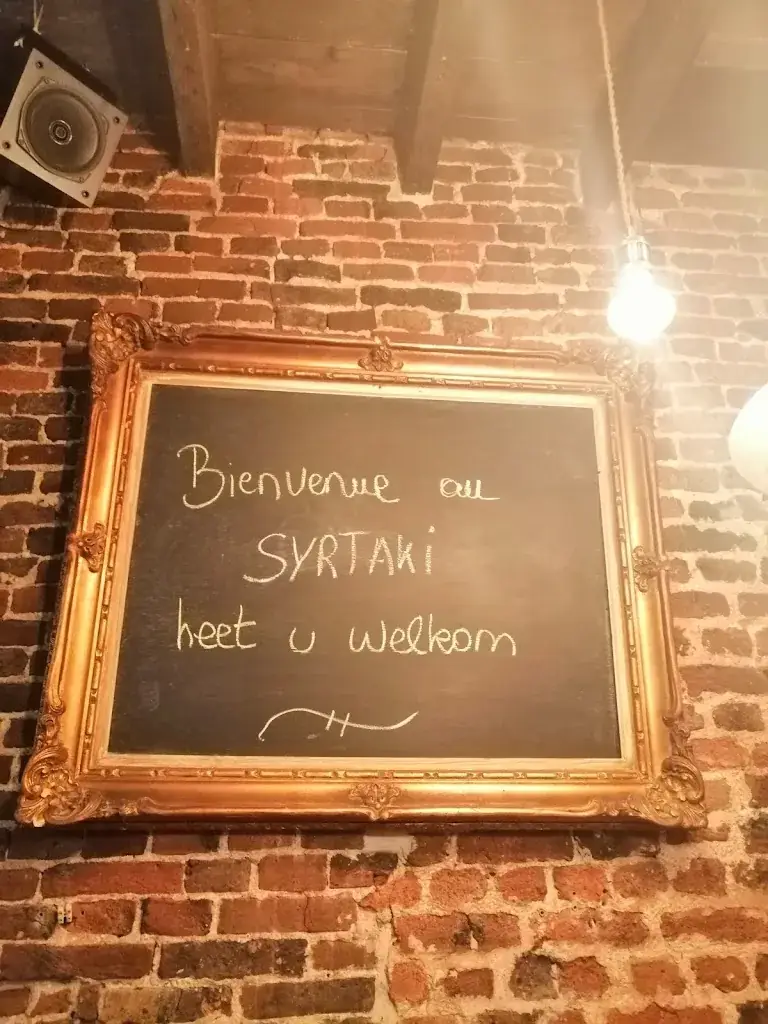 Bienvenue au
SYRTAKi
heet u welkom